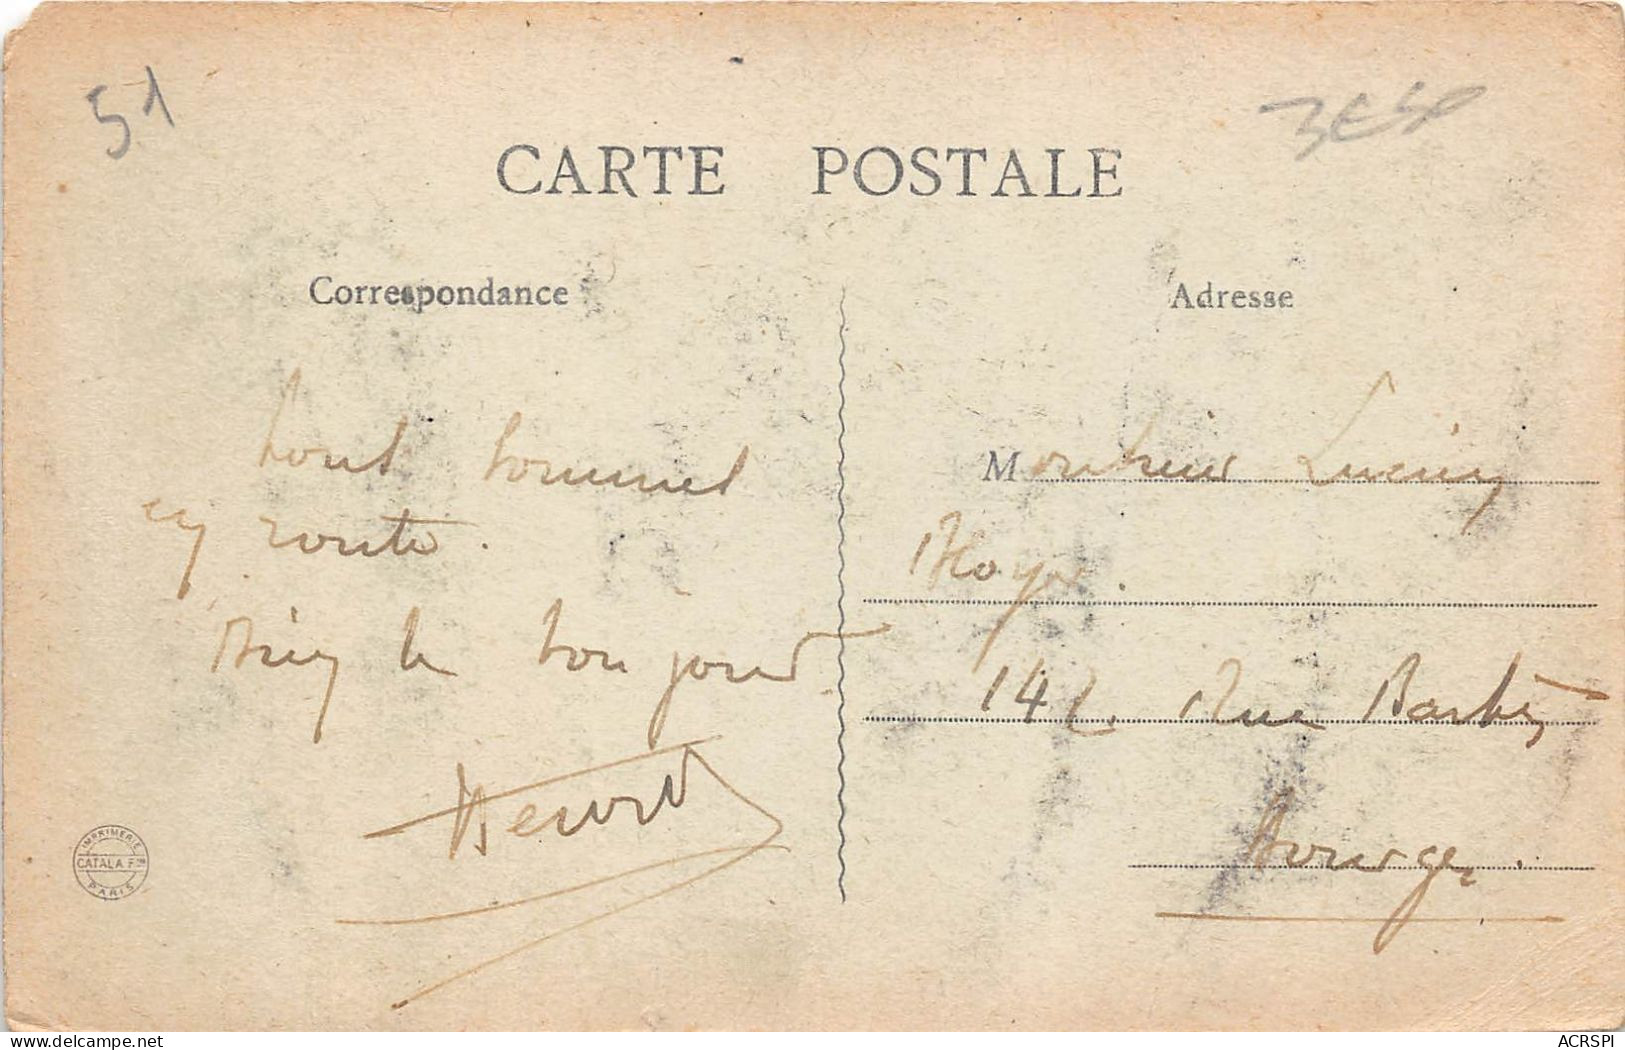 51
CARTE POSTALE
Correspondance
Adresse
tout sommes
en route.
Bien le bonjour
Monsieur Lucien
14 Rue Barbès
Bourges.
IMPRIMERIE
CATALA Fres
PARIS
www.delcampe.net
ACRSPI